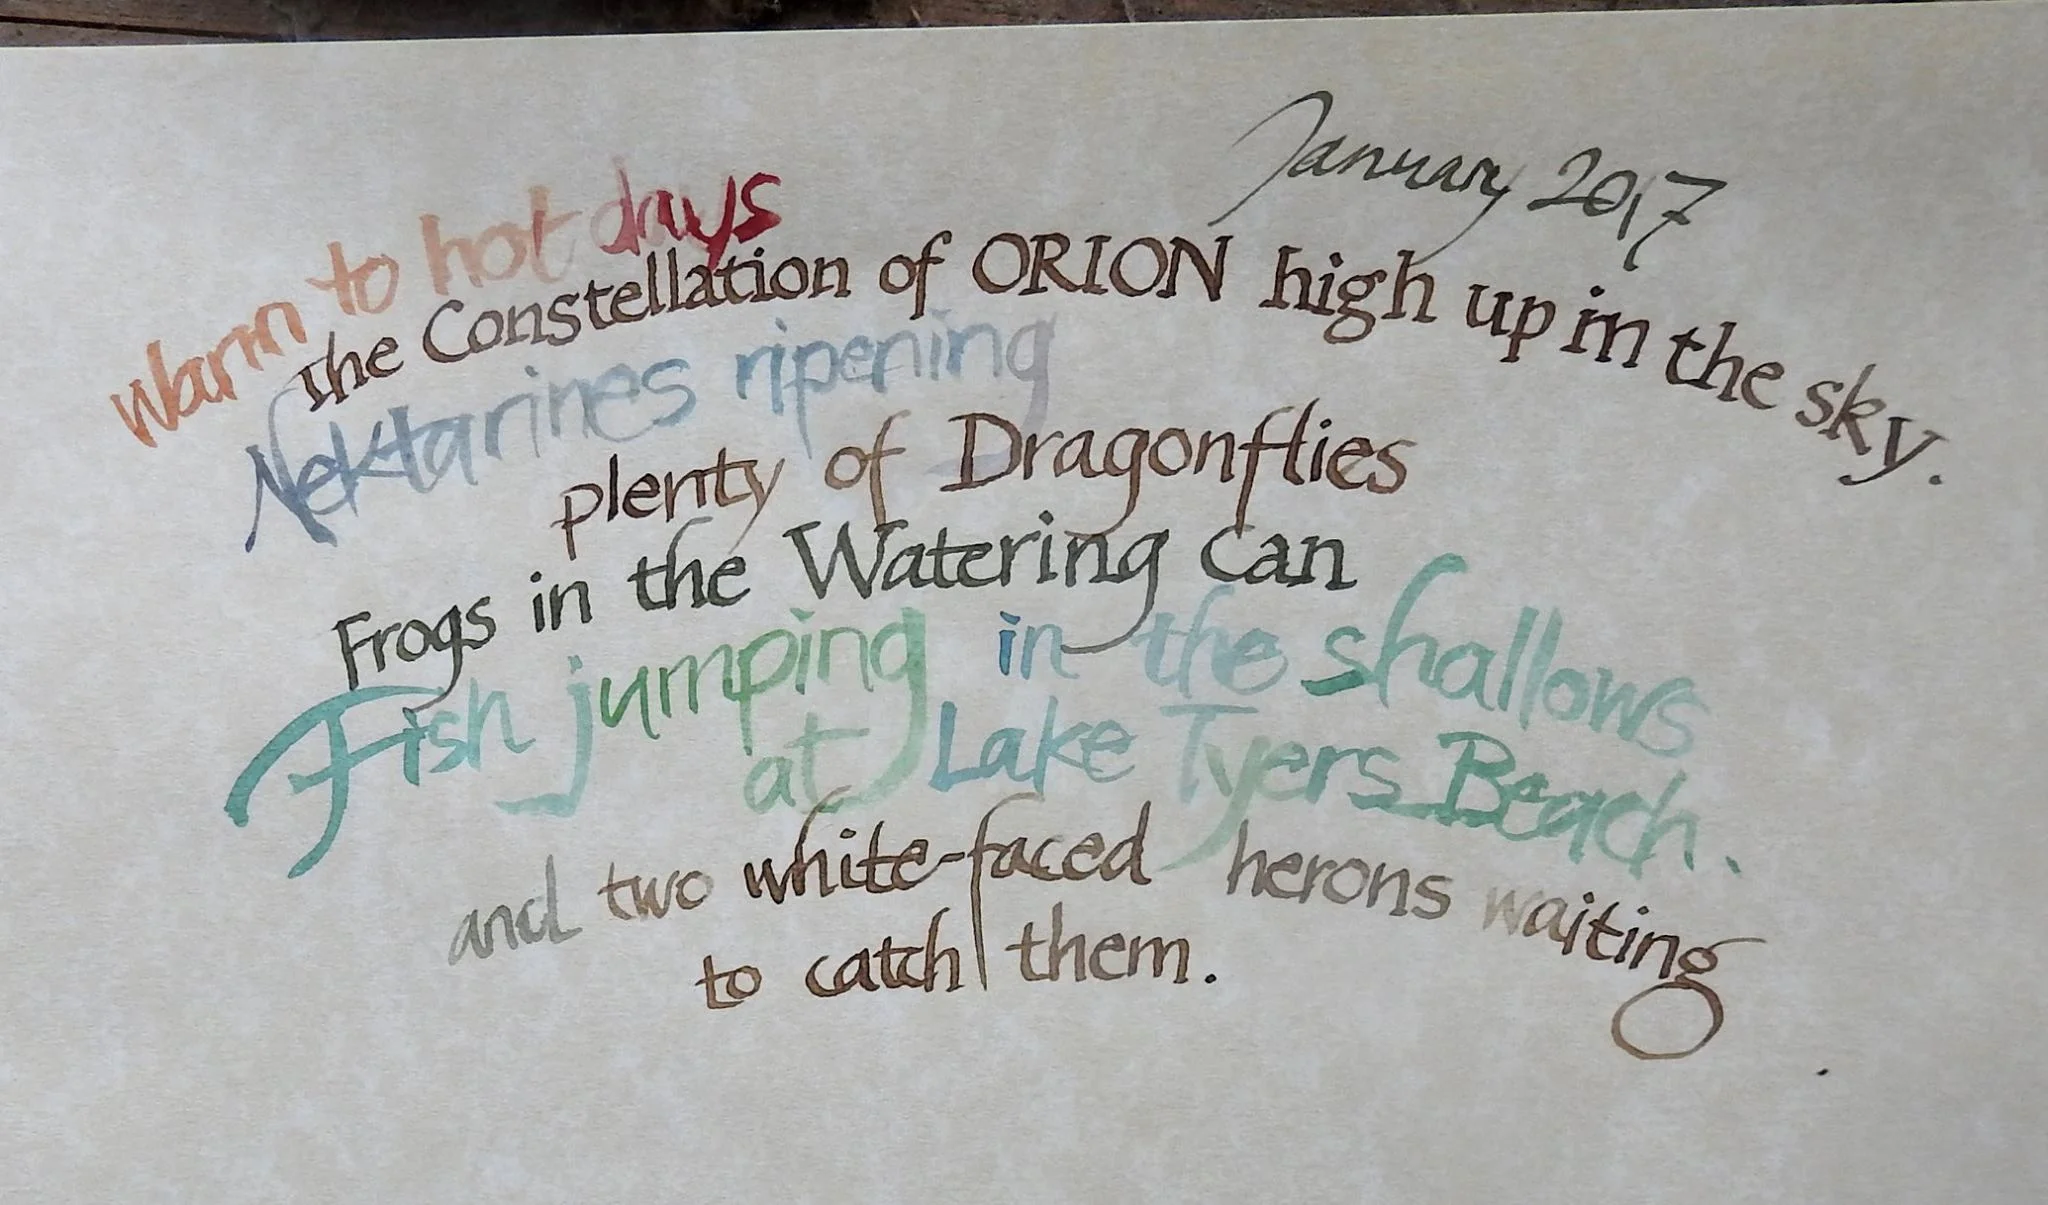 January 2017
Warm to hot days
the Constellation of ORION high up in the sky.
Nektarines ripening
plenty of Dragonflies
Frogs in the Watering can
Fish jumping in the shallows
at Lake Tyers Beach.
and two white-faced herons waiting
to catch them.